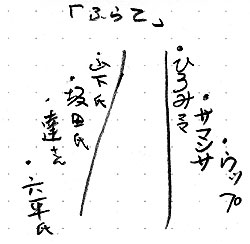 「ふらて」
・ひろみママ
・サマンサ
・ウップ
・山下氏
・坂田氏
・達さん
・六平氏